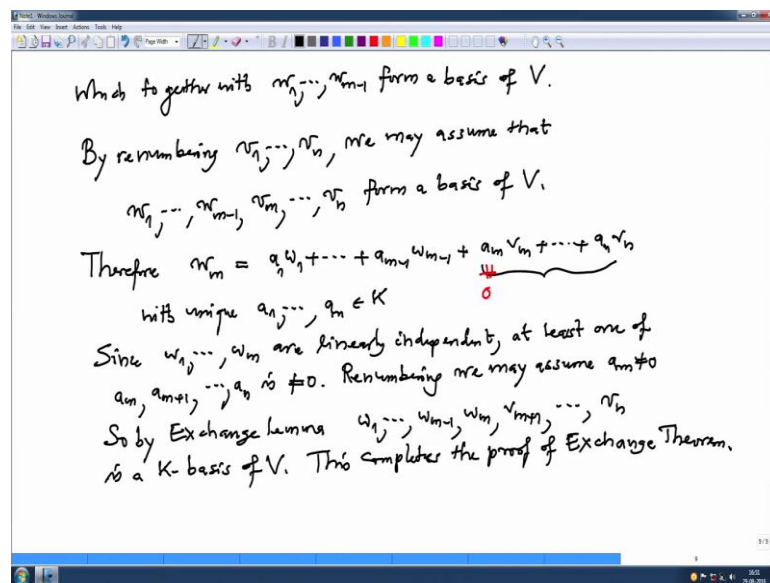 Note1 - Windows Journal
File Edit View Insert Actions Tools Help
Page Width
which together with w₁,⋯,wₘ₋₁ form a basis of V.
By renumbering v₁,⋯,vₙ, we may assume that
w₁,⋯,wₘ₋₁, vₘ,⋯,vₙ form a basis of V.
Therefore wₘ = a₁w₁+⋯+aₘ₋₁wₘ₋₁ + aₘvₘ+⋯+aₙvₙ
0
with unique a₁,⋯,aₙ ∈ K
Since w₁,⋯,wₘ are linearly independent, at least one of
aₘ, aₘ₊₁, ⋯, aₙ is ≠0. Renumbering we may assume aₘ≠0
So by Exchange Lemma w₁,⋯,wₘ₋₁, wₘ, vₘ₊₁, ⋯, vₙ
is a K-basis of V. This completes the proof of Exchange Theorem.
9/9
9
16:51